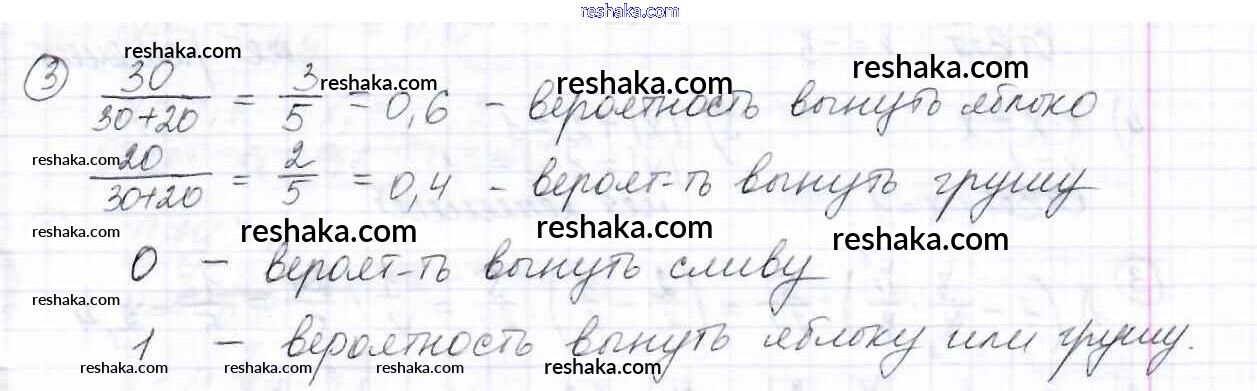 reshaka.com
reshaka.com
③ 30/(30+20) = 3/5 = 0,6 – вероятность вынуть яблоко
reshaka.com
reshaka.com
reshaka.com
reshaka.com
20/(30+20) = 2/5 = 0,4 – вероят-ть вынуть грушу
reshaka.com
reshaka.com
reshaka.com
reshaka.com
reshaka.com
0 – вероят-ть вынуть сливу
reshaka.com
1 – вероятность вынуть яблоку или грушу.
reshaka.com
reshaka.com
reshaka.com
reshaka.com